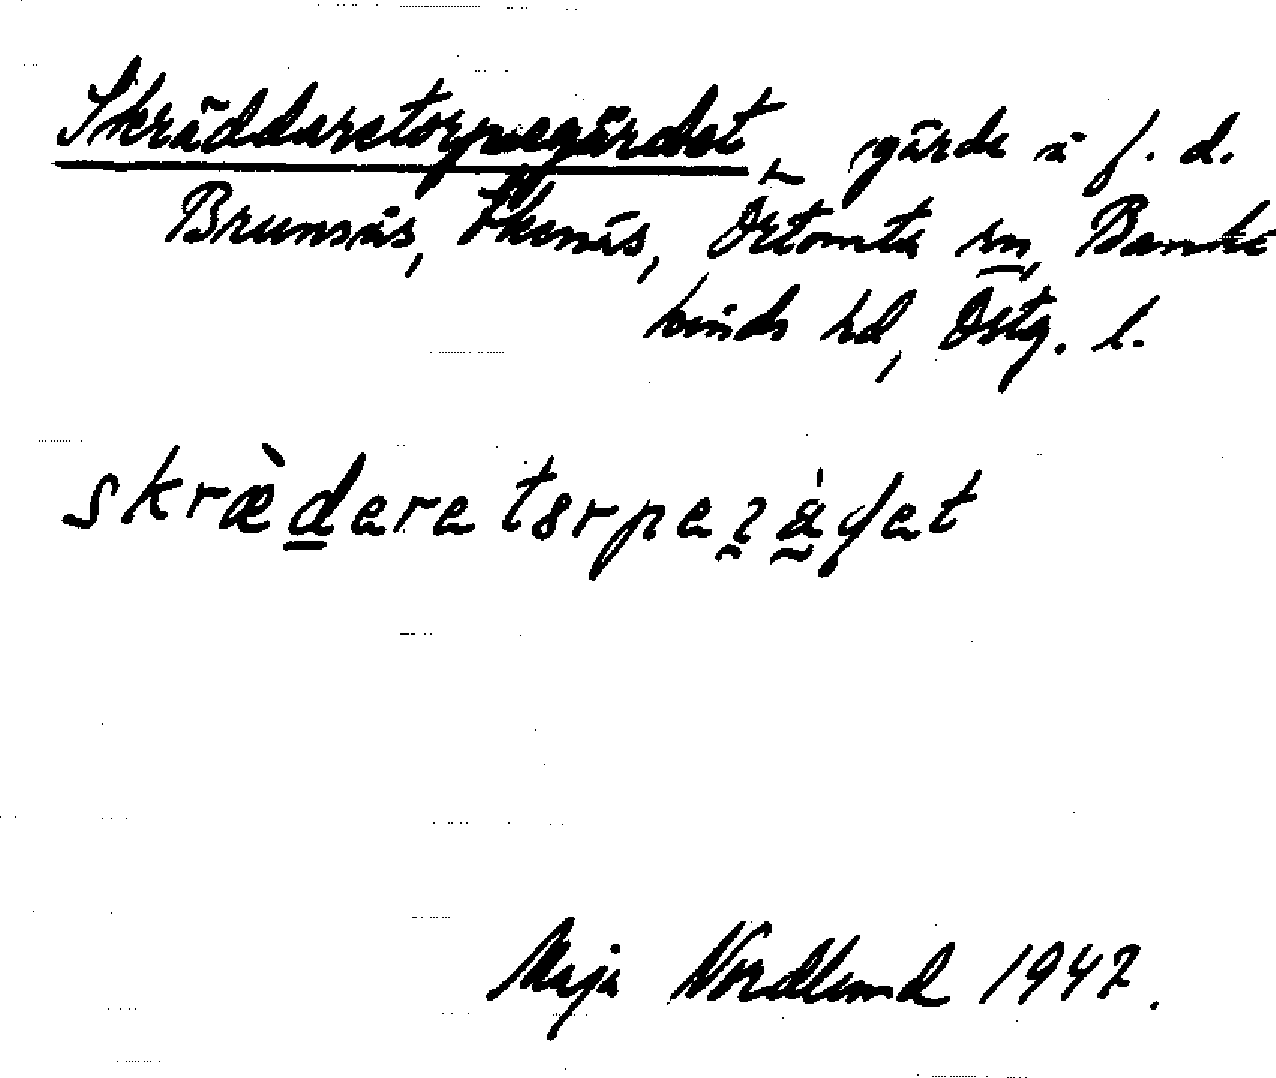 Skräddaretorpegärdet, gärde i f. d.
Brunnsås, Skenäs, Örtomta sn, Banke
kinds hd, Östg. l.
skræ̀deretorpe
Maja Nordlund 1947.